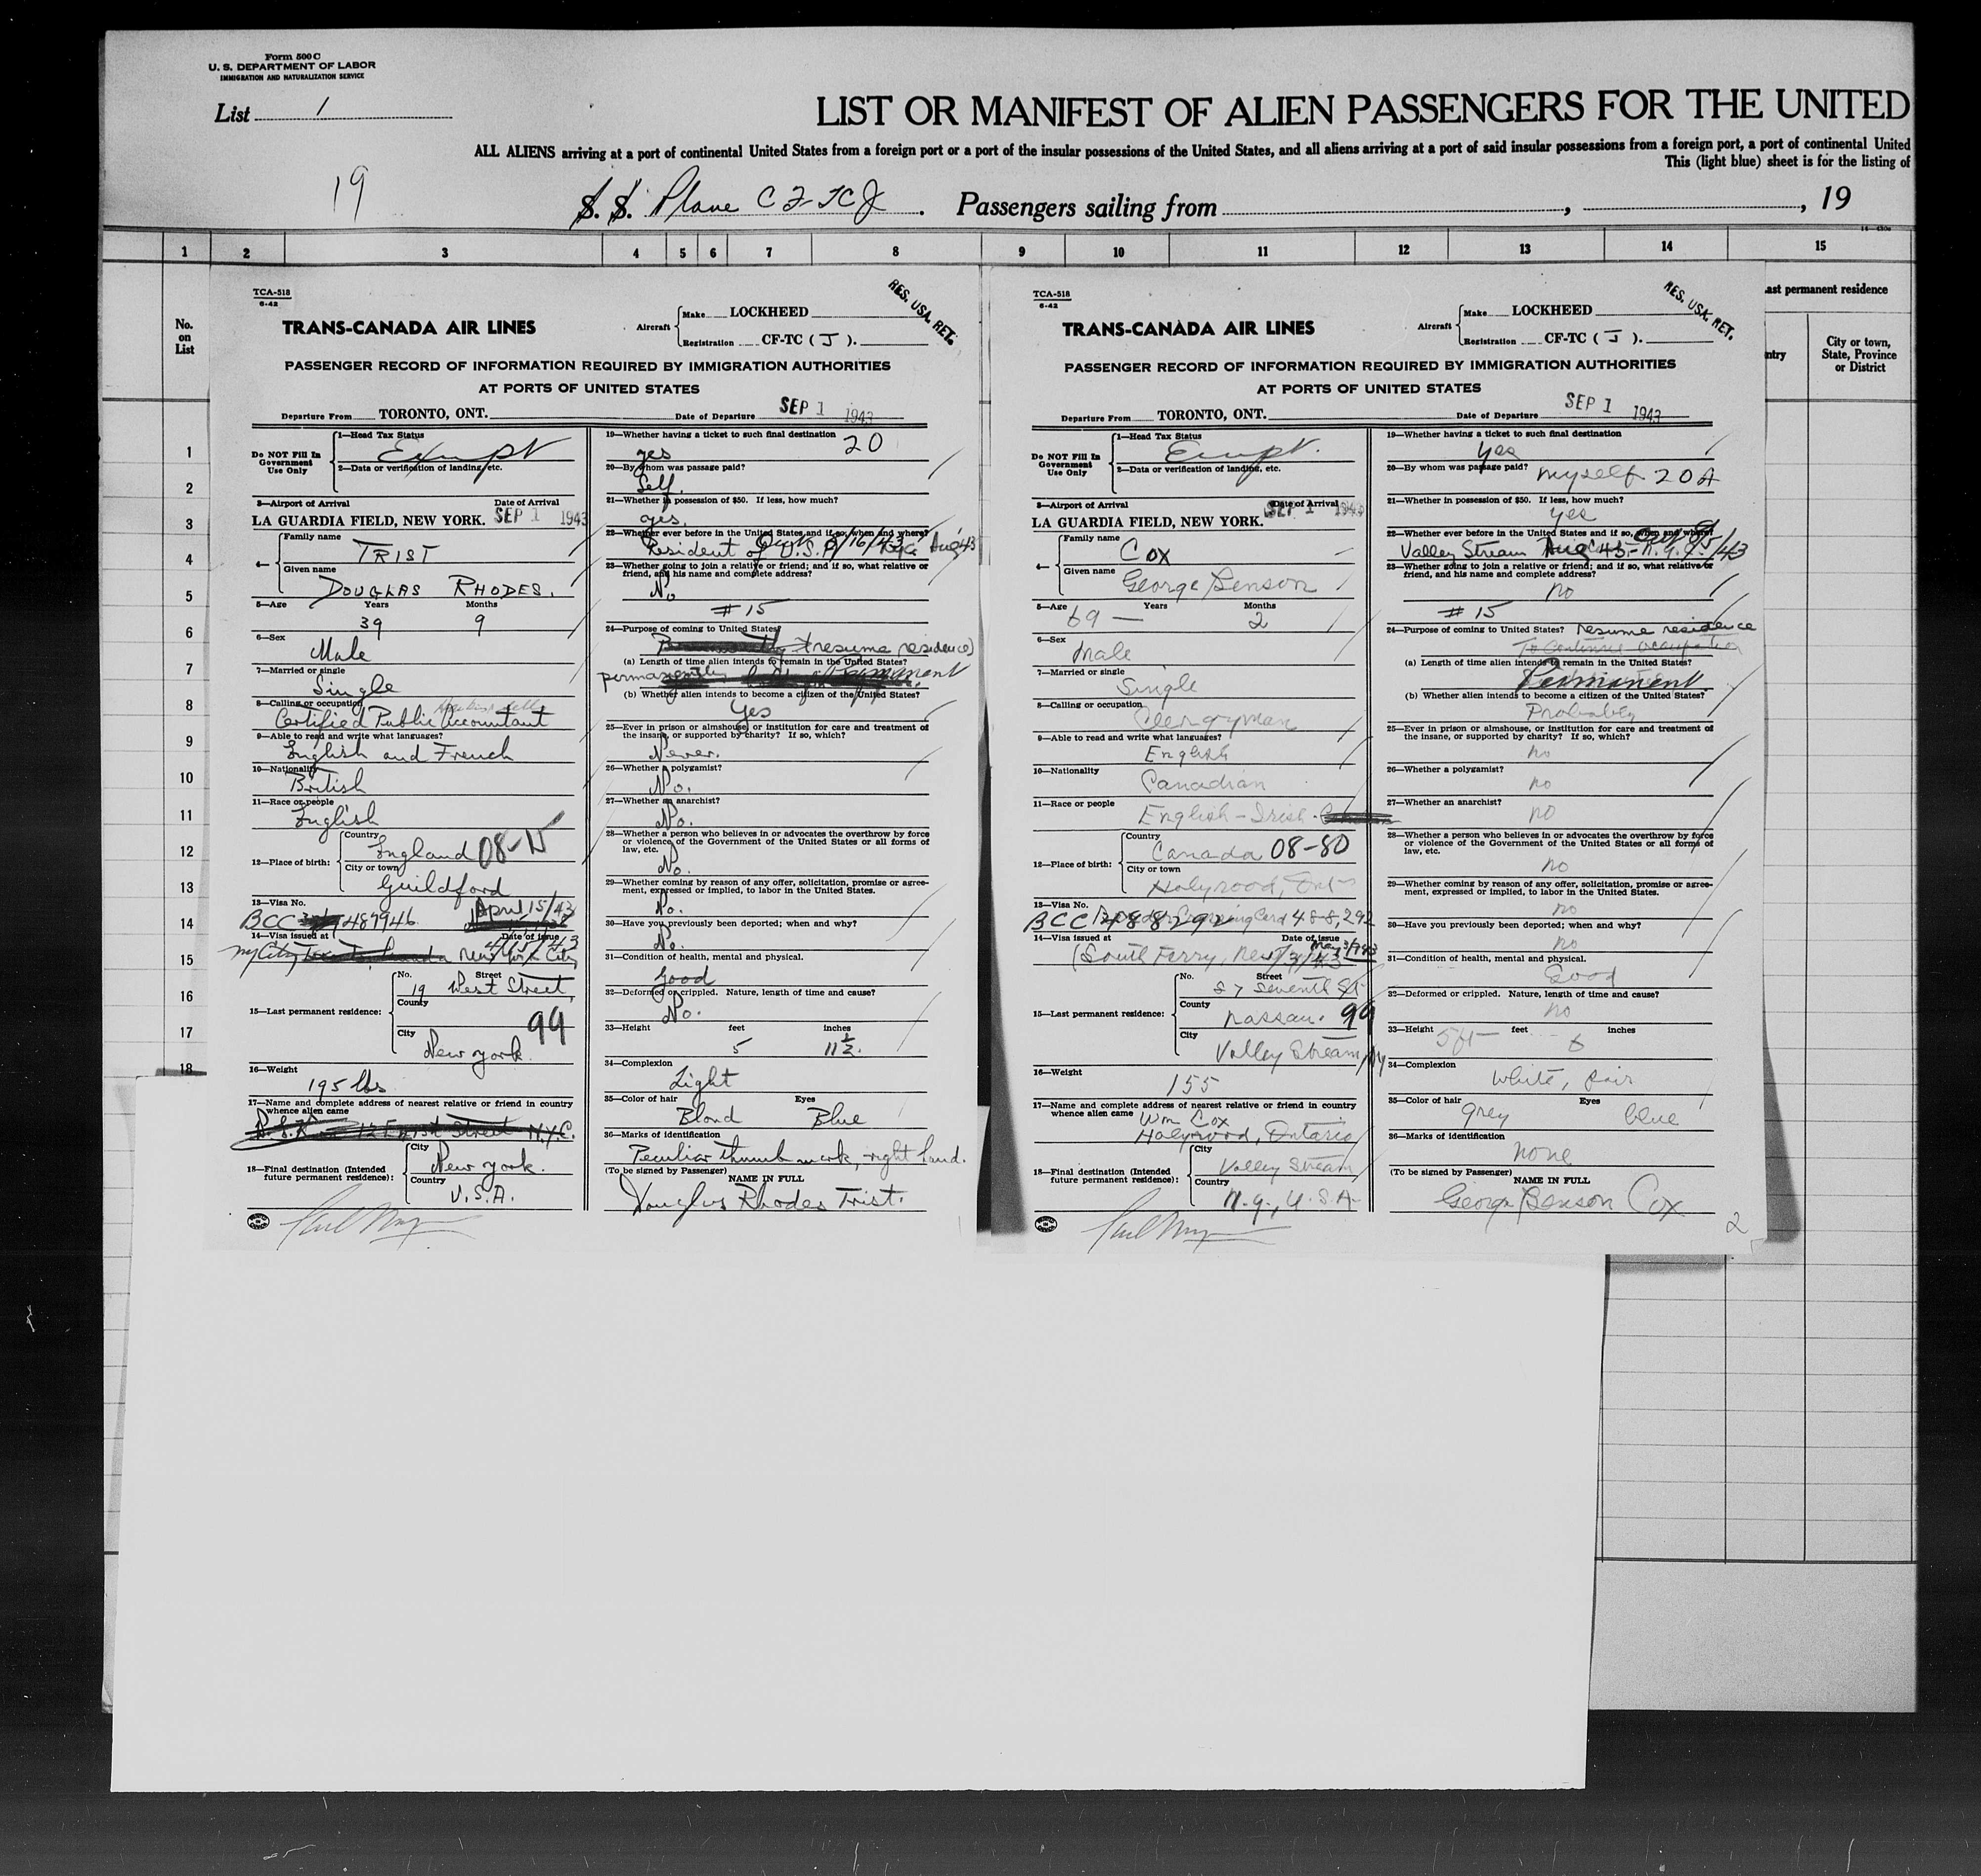 Form 500 C
U. S. DEPARTMENT OF LABOR
IMMIGRATION AND NATURALIZATION SERVICE
List 1
LIST OR MANIFEST OF ALIEN PASSENGERS FOR THE UNITED
ALL ALIENS arriving at a port of continental United States from a foreign port or a port of the insular possessions of the United States, and all aliens arriving at a port of said insular possessions from a foreign port, a port of continental United
This (light blue) sheet is for the listing of
19
S. S. Plane CF-TCJ. Passengers sailing from , , 19
1 2 3 4 5 6 7 8 9 10 11 12 13 14 15
No. on List
last permanent residence
City or town, State, Province or District
1
2
3
4
5
6
7
8
9
10
11
12
13
14
15
16
17
18
TCA-518
6-42
TRANS-CANADA AIR LINES
Aircraft Make LOCKHEED
Registration CF-TC ( J ).
RES. USA. RET.
PASSENGER RECORD OF INFORMATION REQUIRED BY IMMIGRATION AUTHORITIES
AT PORTS OF UNITED STATES
Departure From TORONTO, ONT. Date of Departure SEP 1 1943
Do NOT Fill In Government Use Only
1—Head Tax Status Exempt
2—Data or verification of landing, etc.
3—Airport of Arrival Date of Arrival
LA GUARDIA FIELD, NEW YORK. SEP 1 1943
4— Family name TRIST
Given name DOUGLAS RHODES.
5—Age Years Months
39 9
6—Sex
Male
7—Married or single
Single
8—Calling or occupation
Certified Public Accountant
9—Able to read and write what languages?
English and French
10—Nationality
British
11—Race or people
English
12—Place of birth: Country England 08-
City or town Guildford
13—Visa No. April 15/43
BCC 487946
14—Visa issued at Date of issue 4/15/43
NY City New York City
15—Last permanent residence: No. Street
19 West Street,
County 99
City New York
16—Weight
195 lbs
17—Name and complete address of nearest relative or friend in country whence alien came
12 East Street N.Y.C.
18—Final destination (Intended future permanent residence): City New York.
Country U.S.A.
19—Whether having a ticket to such final destination 20
yes
20—By whom was passage paid?
Self.
21—Whether in possession of $50. If less, how much?
yes.
22—Whether ever before in the United States and if so, when and where?
Resident of U.S.A. 8/16/43 Aug 43
23—Whether going to join a relative or friend; and if so, what relative or friend, and his name and complete address?
No
# 15
24—Purpose of coming to United States?
resume residence)
(a) Length of time alien intends to remain in the United States?
permanently Permanent
(b) Whether alien intends to become a citizen of the United States?
Yes
25—Ever in prison or almshouse, or institution for care and treatment of the insane, or supported by charity? If so, which?
Never.
26—Whether a polygamist?
No.
27—Whether an anarchist?
No.
28—Whether a person who believes in or advocates the overthrow by force or violence of the Government of the United States or all forms of law, etc.
No.
29—Whether coming by reason of any offer, solicitation, promise or agreement, expressed or implied, to labor in the United States.
No.
30—Have you previously been deported; when and why?
No.
31—Condition of health, mental and physical.
Good
32—Deformed or crippled. Nature, length of time and cause?
No.
33—Height feet inches
5 11½.
34—Complexion
Light
35—Color of hair Eyes
Blond Blue
36—Marks of identification
Peculiar thumb mark, right hand.
(To be signed by Passenger) NAME IN FULL
Douglas Rhodes Trist.
TCA-518
6-42
TRANS-CANADA AIR LINES
Aircraft Make LOCKHEED
Registration CF-TC ( J ).
RES. USA. RET.
PASSENGER RECORD OF INFORMATION REQUIRED BY IMMIGRATION AUTHORITIES
AT PORTS OF UNITED STATES
Departure From TORONTO, ONT. Date of Departure SEP 1 1943
Do NOT Fill In Government Use Only
1—Head Tax Status Exempt.
2—Data or verification of landing, etc.
3—Airport of Arrival Date of Arrival
LA GUARDIA FIELD, NEW YORK. SEP 1 1943
4— Family name Cox
Given name George Benson
5—Age Years Months
69 — 2
6—Sex
Male
7—Married or single
Single
8—Calling or occupation
Clergyman
9—Able to read and write what languages?
English
10—Nationality
Canadian
11—Race or people
English-Irish
12—Place of birth: Country Canada 08-80
City or town Holyrood, Ont
13—Visa No.
BCC 488292 Border Crossing Card 488,292
14—Visa issued at Date of issue
(South Ferry, New
15—Last permanent residence: No. Street
27 Seventh St
County Nassau. 99
City Valley Stream, NY
16—Weight
155
17—Name and complete address of nearest relative or friend in country whence alien came
Wm Cox
Holyrood, Ontario
18—Final destination (Intended future permanent residence): City Valley Stream
Country N.Y., U.S.A.
19—Whether having a ticket to such final destination
Yes
20—By whom was passage paid?
myself 20A
21—Whether in possession of $50. If less, how much?
yes
22—Whether ever before in the United States and if so, when and where?
Valley Stream Aug
23—Whether going to join a relative or friend; and if so, what relative or friend, and his name and complete address?
no
# 15
24—Purpose of coming to United States? resume residence
To Continue occupation
(a) Length of time alien intends to remain in the United States?
Permanent
(b) Whether alien intends to become a citizen of the United States?
Probably
25—Ever in prison or almshouse, or institution for care and treatment of the insane, or supported by charity? If so, which?
no
26—Whether a polygamist?
no
27—Whether an anarchist?
no
28—Whether a person who believes in or advocates the overthrow by force or violence of the Government of the United States or all forms of law, etc.
no
29—Whether coming by reason of any offer, solicitation, promise or agreement, expressed or implied, to labor in the United States.
no
30—Have you previously been deported; when and why?
no
31—Condition of health, mental and physical.
Good
32—Deformed or crippled. Nature, length of time and cause?
no
33—Height feet inches
5 ft 6
34—Complexion
White, fair
35—Color of hair Eyes
grey blue
36—Marks of identification
none
(To be signed by Passenger) NAME IN FULL
George Benson Cox
2